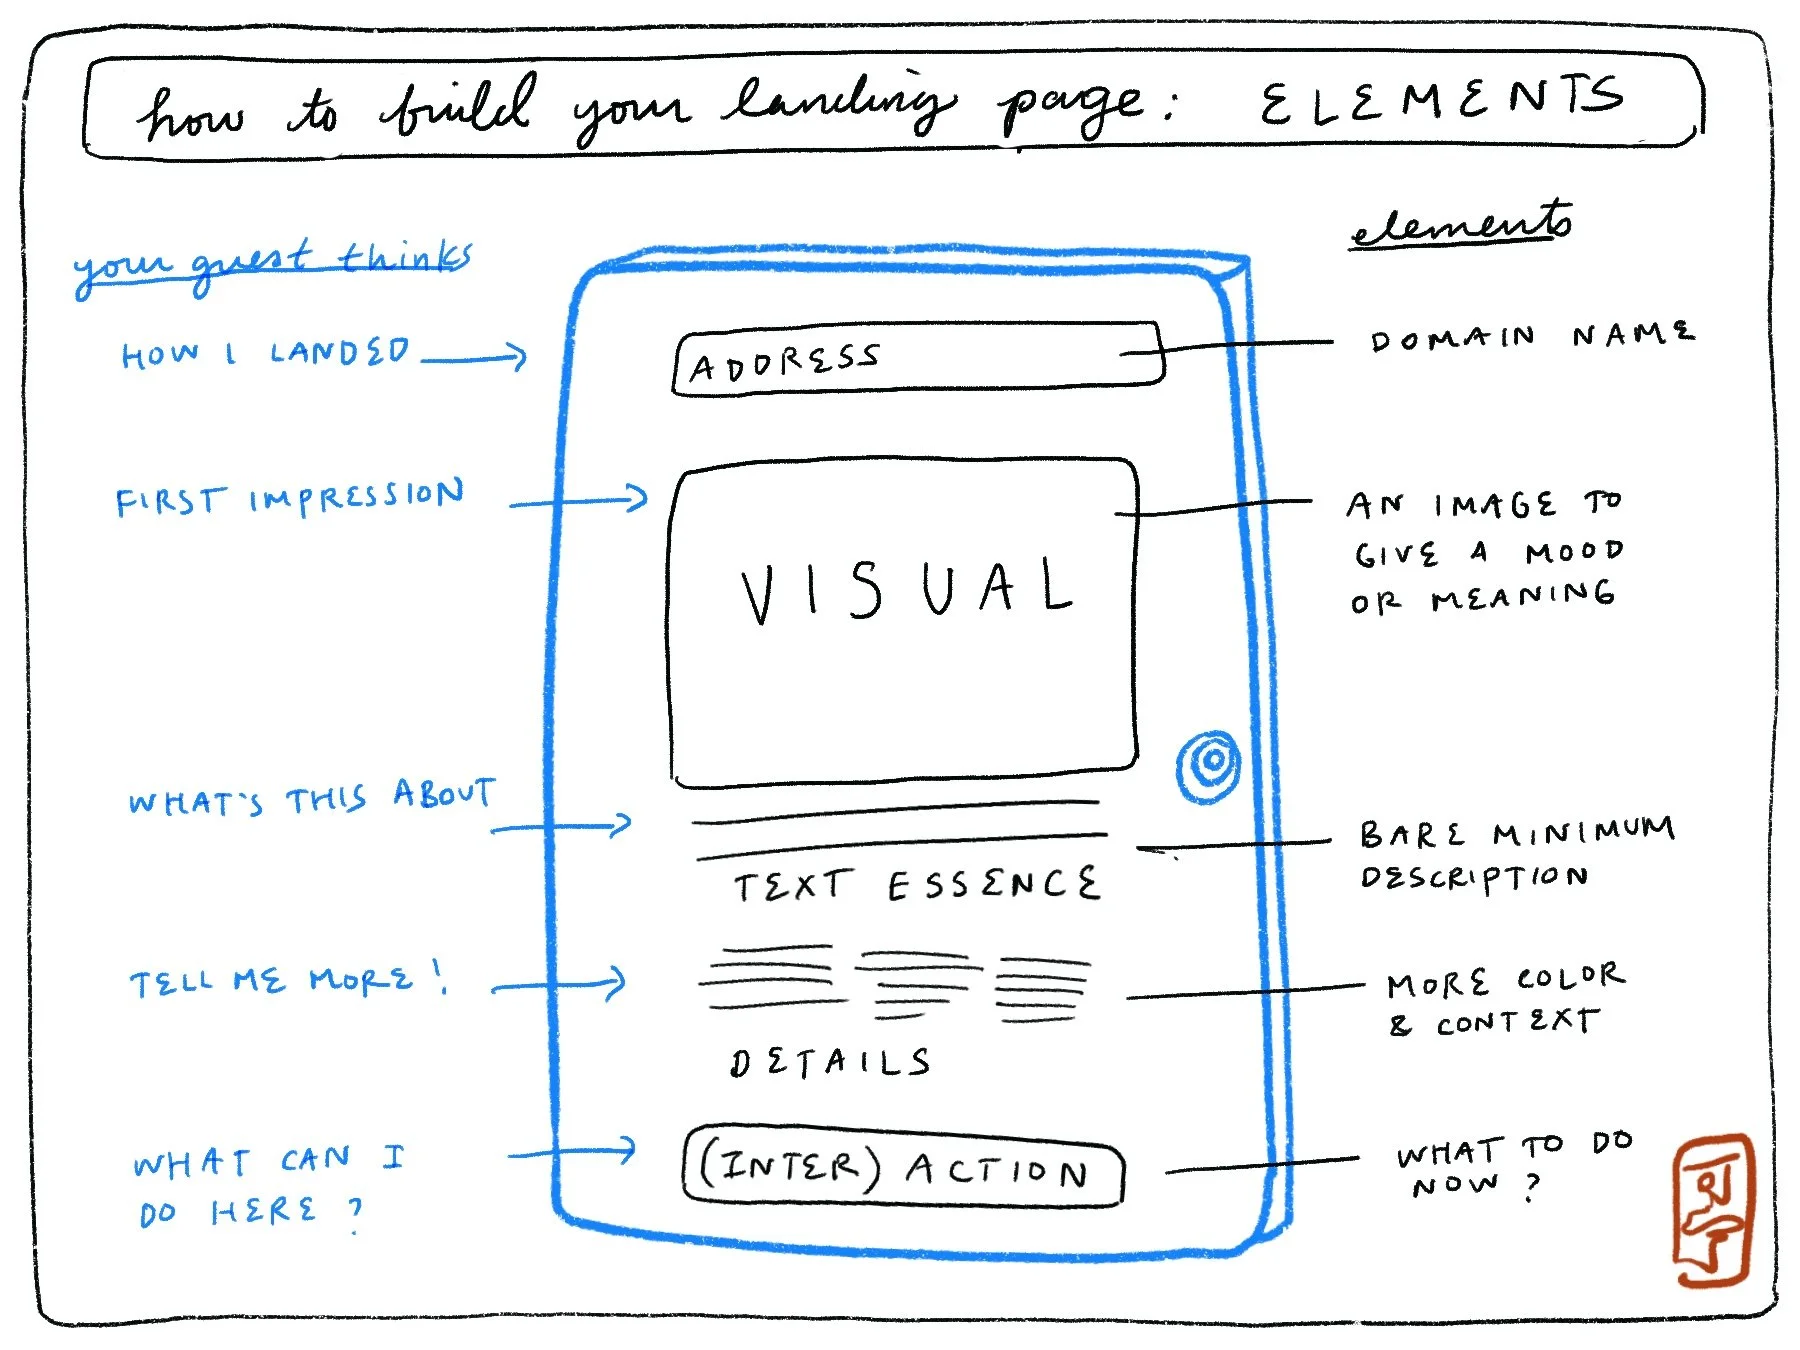 how to build your landing page: ELEMENTS
your guest thinks
elements
HOW I LANDED
ADDRESS
DOMAIN NAME
FIRST IMPRESSION
VISUAL
AN IMAGE TO
GIVE A MOOD
OR MEANING
WHAT'S THIS ABOUT
TEXT ESSENCE
BARE MINIMUM
DESCRIPTION
TELL ME MORE!
DETAILS
MORE COLOR
& CONTEXT
WHAT CAN I
DO HERE?
(INTER) ACTION
WHAT TO DO
NOW?